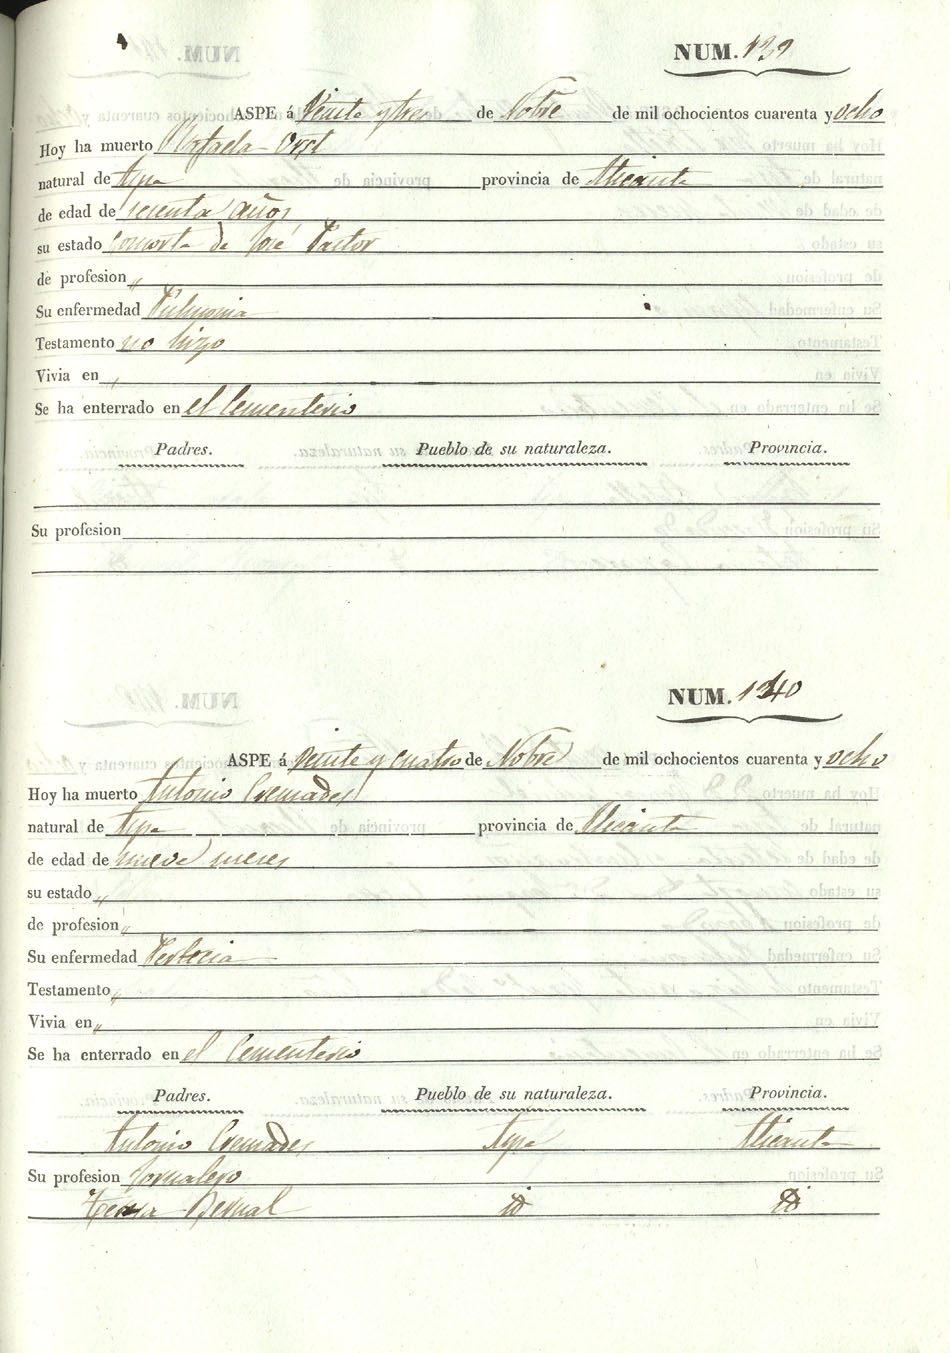 NUM. 139
ASPE á Veinte y tres de Nobre de mil ochocientos cuarenta y ocho
Hoy ha muerto Rafaela
natural de Aspe provincia de Alicante
de edad de años
su estado consorte de José Pastor
de profesion „
Su enfermedad Pulmonia
Testamento no hizo
Vivia en „
Se ha enterrado en el Cementerio
Padres. Pueblo de su naturaleza. Provincia.
Su profesion
NUM. 140
ASPE á Veinte y cuatro de Nobre de mil ochocientos cuarenta y ocho
Hoy ha muerto Antonio Cremades
natural de Aspe provincia de Alicante
de edad de nueve meses
su estado „
de profesion „
Su enfermedad
Testamento „
Vivia en „
Se ha enterrado en el Cementerio
Padres. Pueblo de su naturaleza. Provincia.
Antonio Cremades Aspe Alicante
Su profesion Jornalero
Teresa Bernal id id